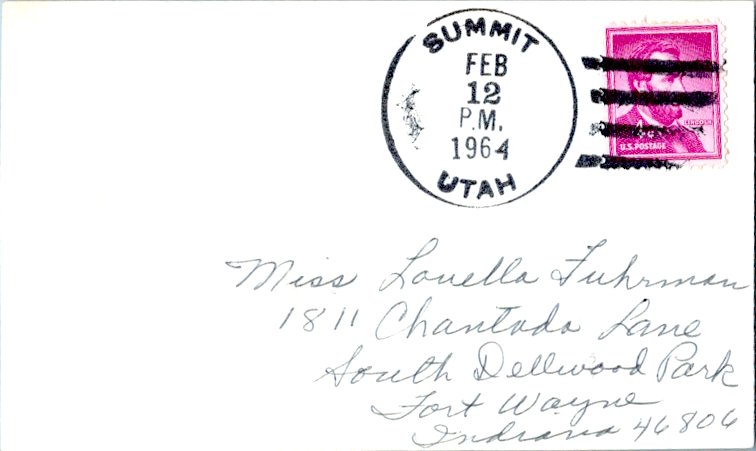 SUMMIT
FEB
12
P.M.
1964
UTAH
LINCOLN
4¢
U.S. POSTAGE
Miss Louella Fuhrman
1811 Chantada Lane
South Dellwood Park
Fort Wayne
Indiana 46806